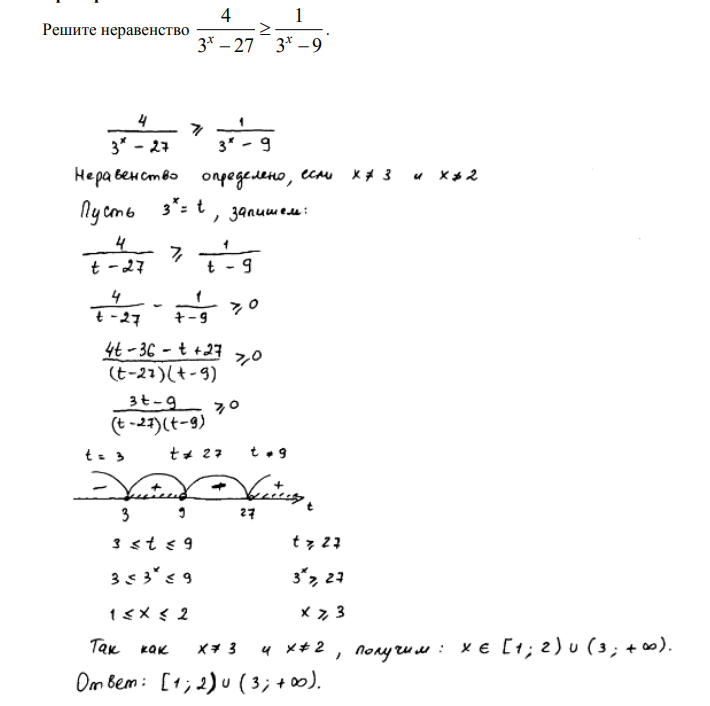 Решите неравенство 4/(3^x − 27) ≥ 1/(3^x − 9).
4/(3^x − 27) ⩾ 1/(3^x − 9)
Неравенство определено, если x ≠ 3 и x ≠ 2
Пусть 3^x = t, запишем:
4/(t − 27) ⩾ 1/(t − 9)
4/(t − 27) − 1/(t − 9) ⩾ 0
(4t − 36 − t + 27)/((t − 27)(t − 9)) ⩾ 0
(3t − 9)/((t − 27)(t − 9)) ⩾ 0
t = 3 t ≠ 27 t ≠ 9
− + − + t
3 9 27
3 ≤ t ≤ 9 t ⩾ 27
3 ≤ 3^x ≤ 9 3^x ⩾ 27
1 ≤ x ≤ 2 x ⩾ 3
Так как x ≠ 3 и x ≠ 2, получим: x ∈ [1; 2) ∪ (3; +∞).
Ответ: [1; 2) ∪ (3; +∞).